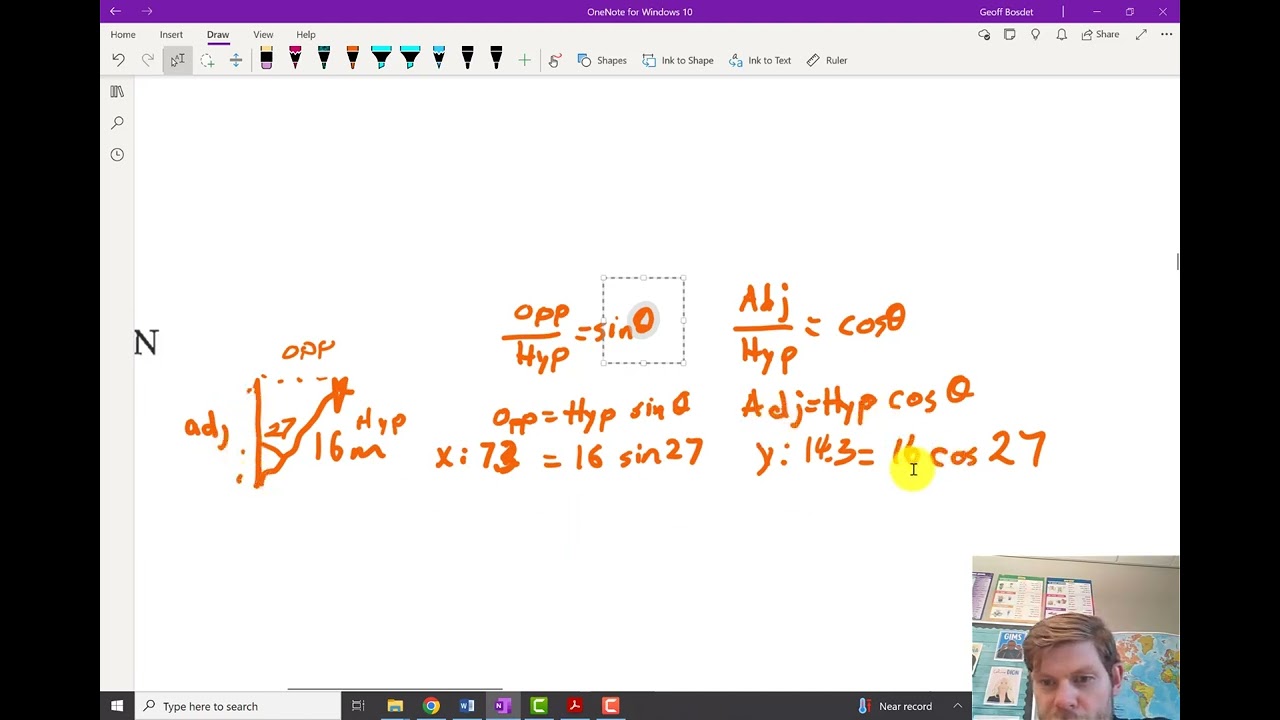 OneNote for Windows 10
Geoff Bosdet
Home Insert Draw View Help
Share
Shapes Ink to Shape Ink to Text Ruler
N
opp
adj
27
Hyp
16m
opp
Hyp
=sinθ
Adj
Hyp
= cosθ
opp = Hyp sin θ
Adj=Hyp cos θ
x: 7.3 = 16 sin27
y: 14.3= 16 cos 27
GIMS
Type here to search
Near record